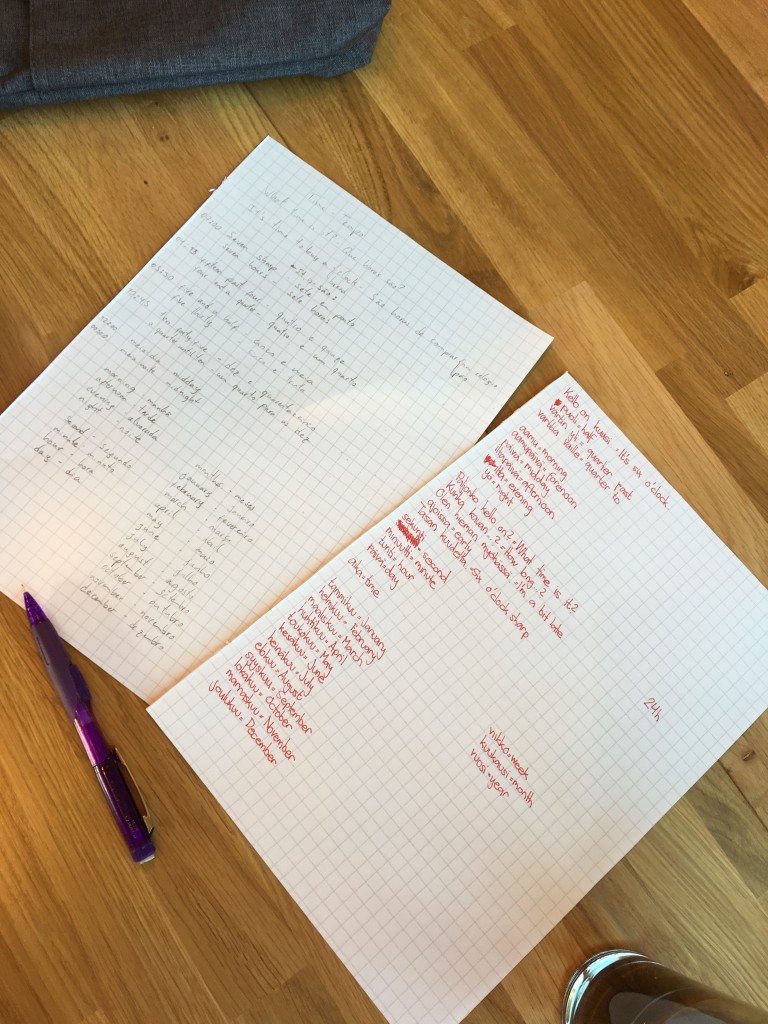 Time : Tempo
What time is it? Que horas são?
It's time to buy a clock - são horas de comprar um relógio
seven sharp - sete em ponto
seven hours sete horas
fifteen past four - quatro e quinze
four and a quarter - quatro e um quarto
five and a half - cinco e meia
five thirty
ten
midday
midnight
morning
afternoon - tarde
evening
night - noite
Second - segundo
minute - minuto
hour - hora
day - dia
months - meses
february - fevereiro
march - março
may - maio
june - junho
july - julho
august - agosto
september - setembro
october - outubro
november - novembro
december - dezembro
Kello on kuusi = It's six o'clock
puoli = half
vartin yli = quarter past
varttia vaille = quarter to
aamu = morning
aamupäivä = forenoon
päivä = midday
iltapäivä = afternoon
ilta = evening
yö = night
Paljonko kello on? = What time is it?
Kuinka kauan -? = How long -?
Olen hieman myöhässä = I'm a bit late
ajoissa = early
Tasan kuudelta = Six o'clock sharp
sekunti = second
minuutti = minute
tunti = hour
päivä = day
aika = time
tammikuu = January
helmikuu = February
maaliskuu = March
huhtikuu = April
toukokuu = May
kesäkuu = June
heinäkuu = July
elokuu = August
syyskuu = September
lokakuu = October
marraskuu = November
joulukuu = December
24h
viikko = week
kuukausi = month
vuosi = year